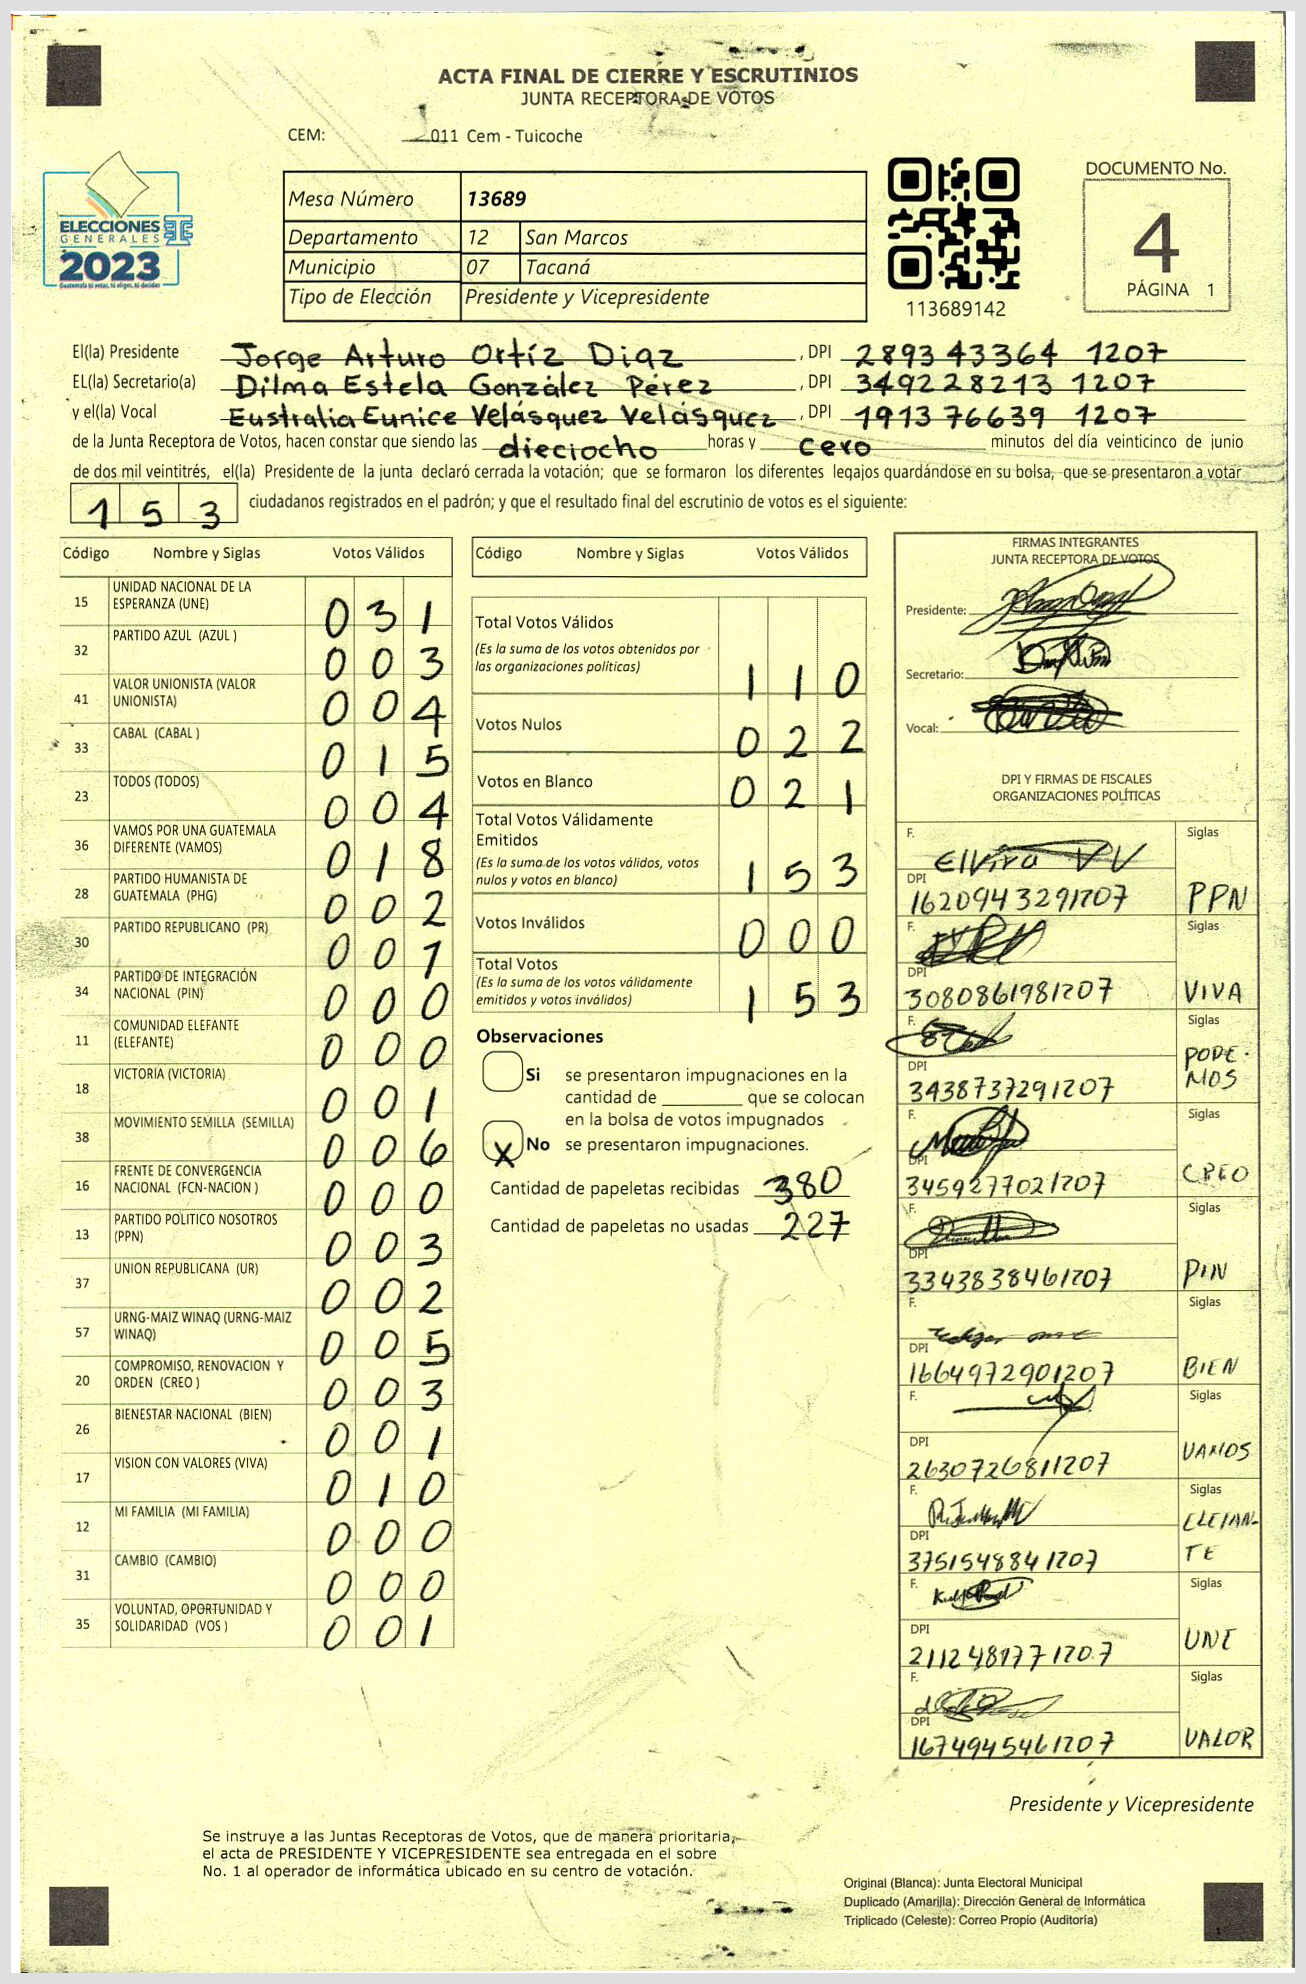 ACTA FINAL DE CIERRE Y ESCRUTINIOS
JUNTA RECEPTORA DE VOTOS
CEM: 2011 Cem - Tuicoche
ELECCIONES
GENERALES
2023
Guatemala tú votas, tú eliges, tú decides
Mesa Número 13689
Departamento 12 San Marcos
Municipio 07 Tacaná
Tipo de Elección Presidente y Vicepresidente
113689142
DOCUMENTO No.
4
PÁGINA 1
El(la) Presidente Jorge Arturo Ortíz Diaz , DPI 2893 43364 1207
EL(la) Secretario(a) Dilma Estela González Pérez , DPI 349228213 1207
y el(la) Vocal Eustralia Eunice Velásquez Velásquez , DPI 1913 76639 1207
de la Junta Receptora de Votos, hacen constar que siendo las dieciocho horas y cero minutos del día veinticinco de junio
de dos mil veintitrés, el(la) Presidente de la junta declaró cerrada la votación; que se formaron los diferentes legajos guardándose en su bolsa, que se presentaron a votar
153 ciudadanos registrados en el padrón; y que el resultado final del escrutinio de votos es el siguiente:
Código Nombre y Siglas Votos Válidos
15 UNIDAD NACIONAL DE LA ESPERANZA (UNE) 031
32 PARTIDO AZUL (AZUL ) 003
41 VALOR UNIONISTA (VALOR UNIONISTA) 004
33 CABAL (CABAL ) 015
23 TODOS (TODOS) 004
36 VAMOS POR UNA GUATEMALA DIFERENTE (VAMOS) 018
28 PARTIDO HUMANISTA DE GUATEMALA (PHG) 002
30 PARTIDO REPUBLICANO (PR) 001
34 PARTIDO DE INTEGRACIÓN NACIONAL (PIN) 000
11 COMUNIDAD ELEFANTE (ELEFANTE) 000
18 VICTORIA (VICTORIA) 001
38 MOVIMIENTO SEMILLA (SEMILLA) 006
16 FRENTE DE CONVERGENCIA NACIONAL (FCN-NACION ) 000
13 PARTIDO POLITICO NOSOTROS (PPN) 003
37 UNION REPUBLICANA (UR) 002
57 URNG-MAIZ WINAQ (URNG-MAIZ WINAQ) 005
20 COMPROMISO, RENOVACION Y ORDEN (CREO ) 003
26 BIENESTAR NACIONAL (BIEN) 001
17 VISION CON VALORES (VIVA) 010
12 MI FAMILIA (MI FAMILIA) 000
31 CAMBIO (CAMBIO) 000
35 VOLUNTAD, OPORTUNIDAD Y SOLIDARIDAD (VOS ) 001
Código Nombre y Siglas Votos Válidos
Total Votos Válidos
(Es la suma de los votos obtenidos por
las organizaciones políticas) 110
Votos Nulos 022
Votos en Blanco 021
Total Votos Válidamente
Emitidos
(Es la suma de los votos válidos, votos
nulos y votos en blanco) 153
Votos Inválidos 000
Total Votos
(Es la suma de los votos válidamente
emitidos y votos inválidos) 153
Observaciones
Si se presentaron impugnaciones en la
cantidad de ________ que se colocan
en la bolsa de votos impugnados
X No se presentaron impugnaciones.
Cantidad de papeletas recibidas 380
Cantidad de papeletas no usadas 227
FIRMAS INTEGRANTES
JUNTA RECEPTORA DE VOTOS
Presidente:
Secretario:
Vocal:
DPI Y FIRMAS DE FISCALES
ORGANIZACIONES POLÍTICAS
F. Elvira VV Siglas
DPI 1620943291207 PPN
F. Siglas
DPI 3080861981207 VIVA
F. Siglas
DPI 3438737291207 PODE-
MOS
F. Siglas
DPI 3459277021207 CREO
F. Siglas
DPI 3343838461207 PIN
F. Siglas
DPI 1664972901207 BIEN
F. Siglas
DPI 2630726811207 VAMOS
F. Siglas
DPI 3751548841207 ELEFAN-
TE
F. Siglas
DPI 2112481771207 UNE
F. Siglas
DPI 1674945461207 VALOR
Presidente y Vicepresidente
Se instruye a las Juntas Receptoras de Votos, que de manera prioritaria,
el acta de PRESIDENTE Y VICEPRESIDENTE sea entregada en el sobre
No. 1 al operador de informática ubicado en su centro de votación.
Original (Blanca): Junta Electoral Municipal
Duplicado (Amarilla): Dirección General de Informática
Triplicado (Celeste): Correo Propio (Auditoría)